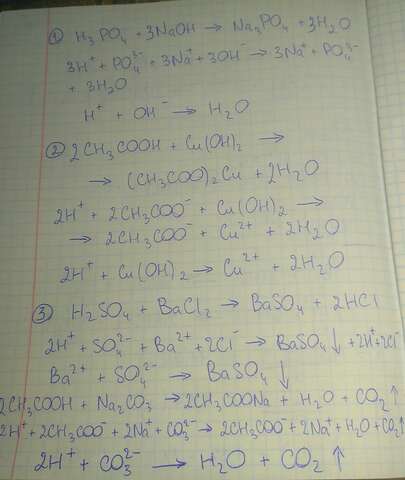 ① H₃PO₄ + 3NaOH → Na₃PO₄ + 3H₂O
3H⁺ + PO₄³⁻ + 3Na⁺ + 3OH⁻ → 3Na⁺ + PO₄³⁻
+ 3H₂O
H⁺ + OH⁻ → H₂O
② 2CH₃COOH + Cu(OH)₂ →
→ (CH₃COO)₂Cu + 2H₂O
2H⁺ + 2CH₃COO⁻ + Cu(OH)₂ →
→ 2CH₃COO⁻ + Cu²⁺ + 2H₂O
2H⁺ + Cu(OH)₂ → Cu²⁺ + 2H₂O
③ H₂SO₄ + BaCl₂ → BaSO₄ + 2HCl
2H⁺ + SO₄²⁻ + Ba²⁺ + 2Cl⁻ → BaSO₄↓ + 2H⁺ + 2Cl⁻
Ba²⁺ + SO₄²⁻ → BaSO₄↓
2CH₃COOH + Na₂CO₃ → 2CH₃COONa + H₂O + CO₂↑
2H⁺ + 2CH₃COO⁻ + 2Na⁺ + CO₃²⁻ → 2CH₃COO⁻ + 2Na⁺ + H₂O + CO₂↑
2H⁺ + CO₃²⁻ → H₂O + CO₂↑